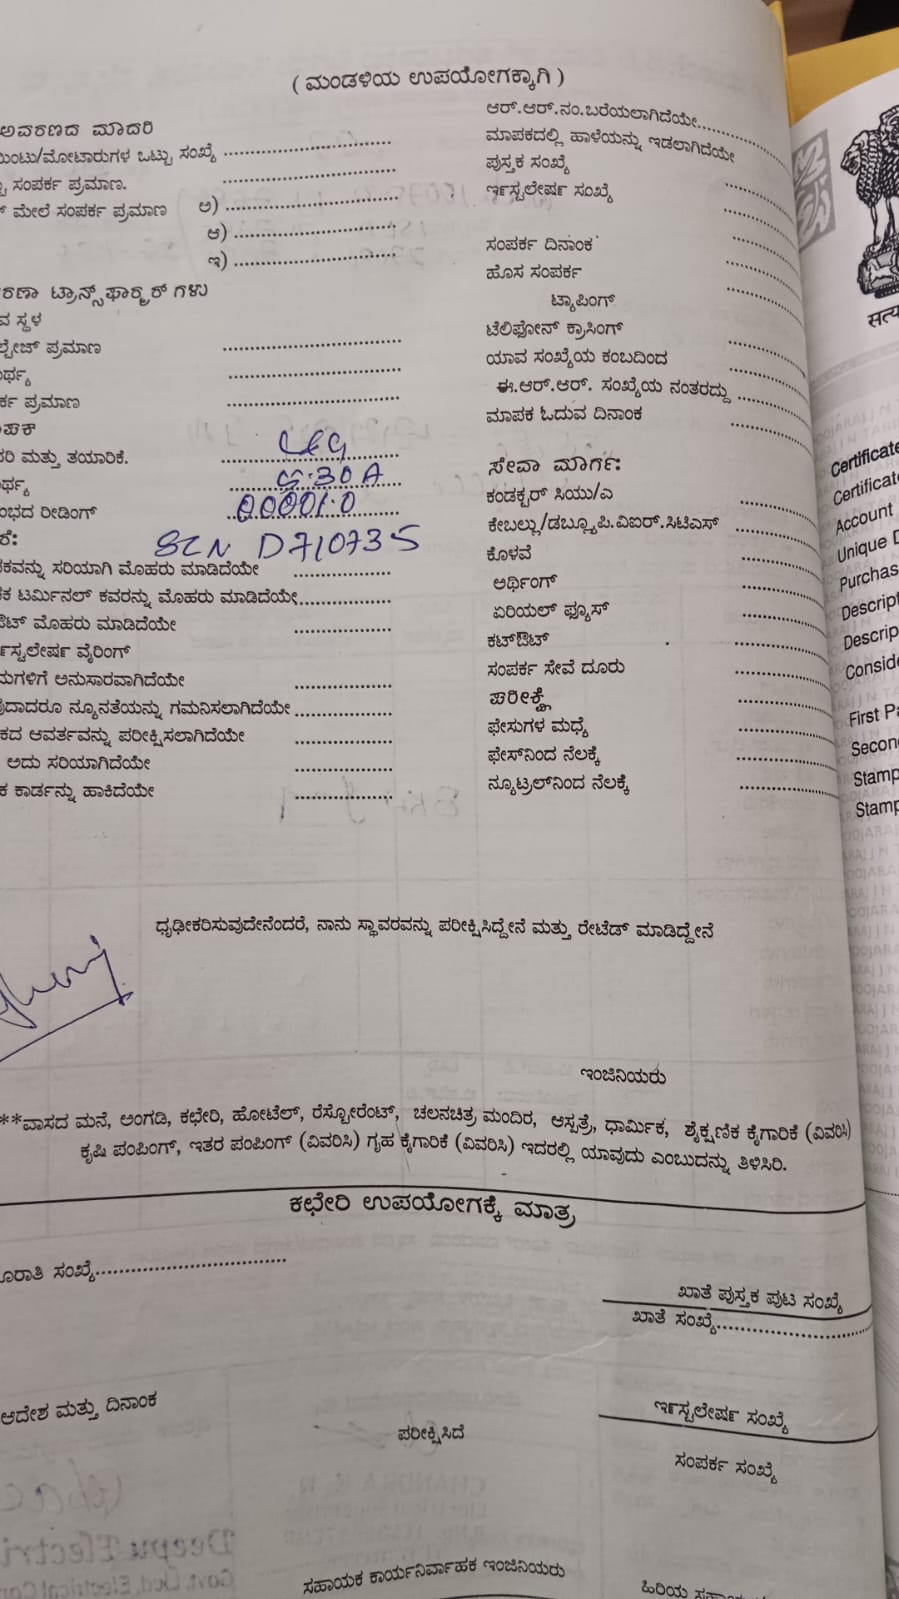 ( ಮಂಡಳಿಯ ಉಪಯೋಗಕ್ಕಾಗಿ )
ಆವರಣದ ಮಾದರಿ
ಪಾಯಿಂಟು/ಮೋಟಾರುಗಳ ಒಟ್ಟು ಸಂಖ್ಯೆ
ಸಂಪರ್ಕ ಪ್ರಮಾಣ.
ಮೇಲೆ ಸಂಪರ್ಕ ಪ್ರಮಾಣ ಅ)
ಆ)
ಇ)
ಟ್ರಾನ್ಸ್‌ಫಾರ್ಮರ್ ಗಳು
ಸ್ಥಳ
ಪ್ರಮಾಣ
ಪ್ರಮಾಣ
ಮತ್ತು ತಯಾರಿಕೆ. L&G
5-30 A
ರೀಡಿಂಗ್ 00001.0
SLN D710735
ಸರಿಯಾಗಿ ಮೊಹರು ಮಾಡಿದೆಯೇ
ಟರ್ಮಿನಲ್ ಕವರನ್ನು ಮೊಹರು ಮಾಡಿದೆಯೇ
ಮೊಹರು ಮಾಡಿದೆಯೇ
ವೈರಿಂಗ್
ಅನುಸಾರವಾಗಿದೆಯೇ
ನ್ಯೂನತೆಯನ್ನು ಗಮನಿಸಲಾಗಿದೆಯೇ
ಆವರ್ತವನ್ನು ಪರೀಕ್ಷಿಸಲಾಗಿದೆಯೇ
ಅದು ಸರಿಯಾಗಿದೆಯೇ
ಕಾರ್ಡನ್ನು ಹಾಕಿದೆಯೇ
ಆರ್.ಆರ್.ನಂ.ಬರೆಯಲಾಗಿದೆಯೇ
ಮಾಪಕದಲ್ಲಿ ಹಾಳೆಯನ್ನು ಇಡಲಾಗಿದೆಯೇ
ಪುಸ್ತಕ ಸಂಖ್ಯೆ
ಇನ್‌ಸ್ಟಲೇಷನ್ ಸಂಖ್ಯೆ
ಸಂಪರ್ಕ ದಿನಾಂಕ
ಹೊಸ ಸಂಪರ್ಕ
ಟ್ಯಾಪಿಂಗ್
ಟೆಲಿಫೋನ್ ಕ್ರಾಸಿಂಗ್
ಯಾವ ಸಂಖ್ಯೆಯ ಕಂಬದಿಂದ
ಈ.ಆರ್.ಆರ್. ಸಂಖ್ಯೆಯ ನಂತರದ್ದು
ಮಾಪಕ ಓದುವ ದಿನಾಂಕ
ಸೇವಾ ಮಾರ್ಗ:
ಕಂಡಕ್ಟರ್ ಸಿಯು/ಎ
ಕೇಬಲ್ಲು/ಡಬ್ಲ್ಯೂಪಿ.ವಿಐಆರ್.ಸಿಟಿಎಸ್
ಕೊಳವೆ
ಅರ್ಥಿಂಗ್
ಏರಿಯಲ್ ಫ್ಯೂಸ್
ಕಟ್‌ಔಟ್
ಸಂಪರ್ಕ ಸೇವೆ ದೂರು
ಪರೀಕ್ಷೆ
ಫೇಸುಗಳ ಮಧ್ಯೆ
ಫೇಸ್‌ನಿಂದ ನೆಲಕ್ಕೆ
ನ್ಯೂಟ್ರಲ್‌ನಿಂದ ನೆಲಕ್ಕೆ
ಧೃಢೀಕರಿಸುವುದೇನೆಂದರೆ, ನಾನು ಸ್ಥಾವರವನ್ನು ಪರೀಕ್ಷಿಸಿದ್ದೇನೆ ಮತ್ತು ರೇಟೆಡ್ ಮಾಡಿದ್ದೇನೆ
ಇಂಜಿನಿಯರು
**ವಾಸದ ಮನೆ, ಅಂಗಡಿ, ಕಛೇರಿ, ಹೋಟೆಲ್, ರೆಸ್ಟೋರೆಂಟ್, ಚಲನಚಿತ್ರ ಮಂದಿರ, ಆಸ್ಪತ್ರೆ, ಧಾರ್ಮಿಕ, ಶೈಕ್ಷಣಿಕ ಕೈಗಾರಿಕೆ (ವಿವರಿಸಿ)
ಕೃಷಿ ಪಂಪಿಂಗ್, ಇತರ ಪಂಪಿಂಗ್ (ವಿವರಿಸಿ) ಗೃಹ ಕೈಗಾರಿಕೆ (ವಿವರಿಸಿ) ಇದರಲ್ಲಿ ಯಾವುದು ಎಂಬುದನ್ನು ತಿಳಿಸಿರಿ.
ಕಛೇರಿ ಉಪಯೋಗಕ್ಕೆ ಮಾತ್ರ
ಸಂಖ್ಯೆ
ಖಾತೆ ಪುಸ್ತಕ ಪುಟ ಸಂಖ್ಯೆ
ಖಾತೆ ಸಂಖ್ಯೆ
ಆದೇಶ ಮತ್ತು ದಿನಾಂಕ
ಇನ್‌ಸ್ಟಲೇಷನ್ ಸಂಖ್ಯೆ
ಪರೀಕ್ಷಿಸಿದೆ
ಸಂಪರ್ಕ ಸಂಖ್ಯೆ
ಸಹಾಯಕ ಕಾರ್ಯನಿರ್ವಾಹಕ ಇಂಜಿನಿಯರು
ಹಿರಿಯ
Certificate
Certificate
Account
Unique
Purchas
Descript
Descrip
Consid
First Pa
Secon
Stamp
Stamp